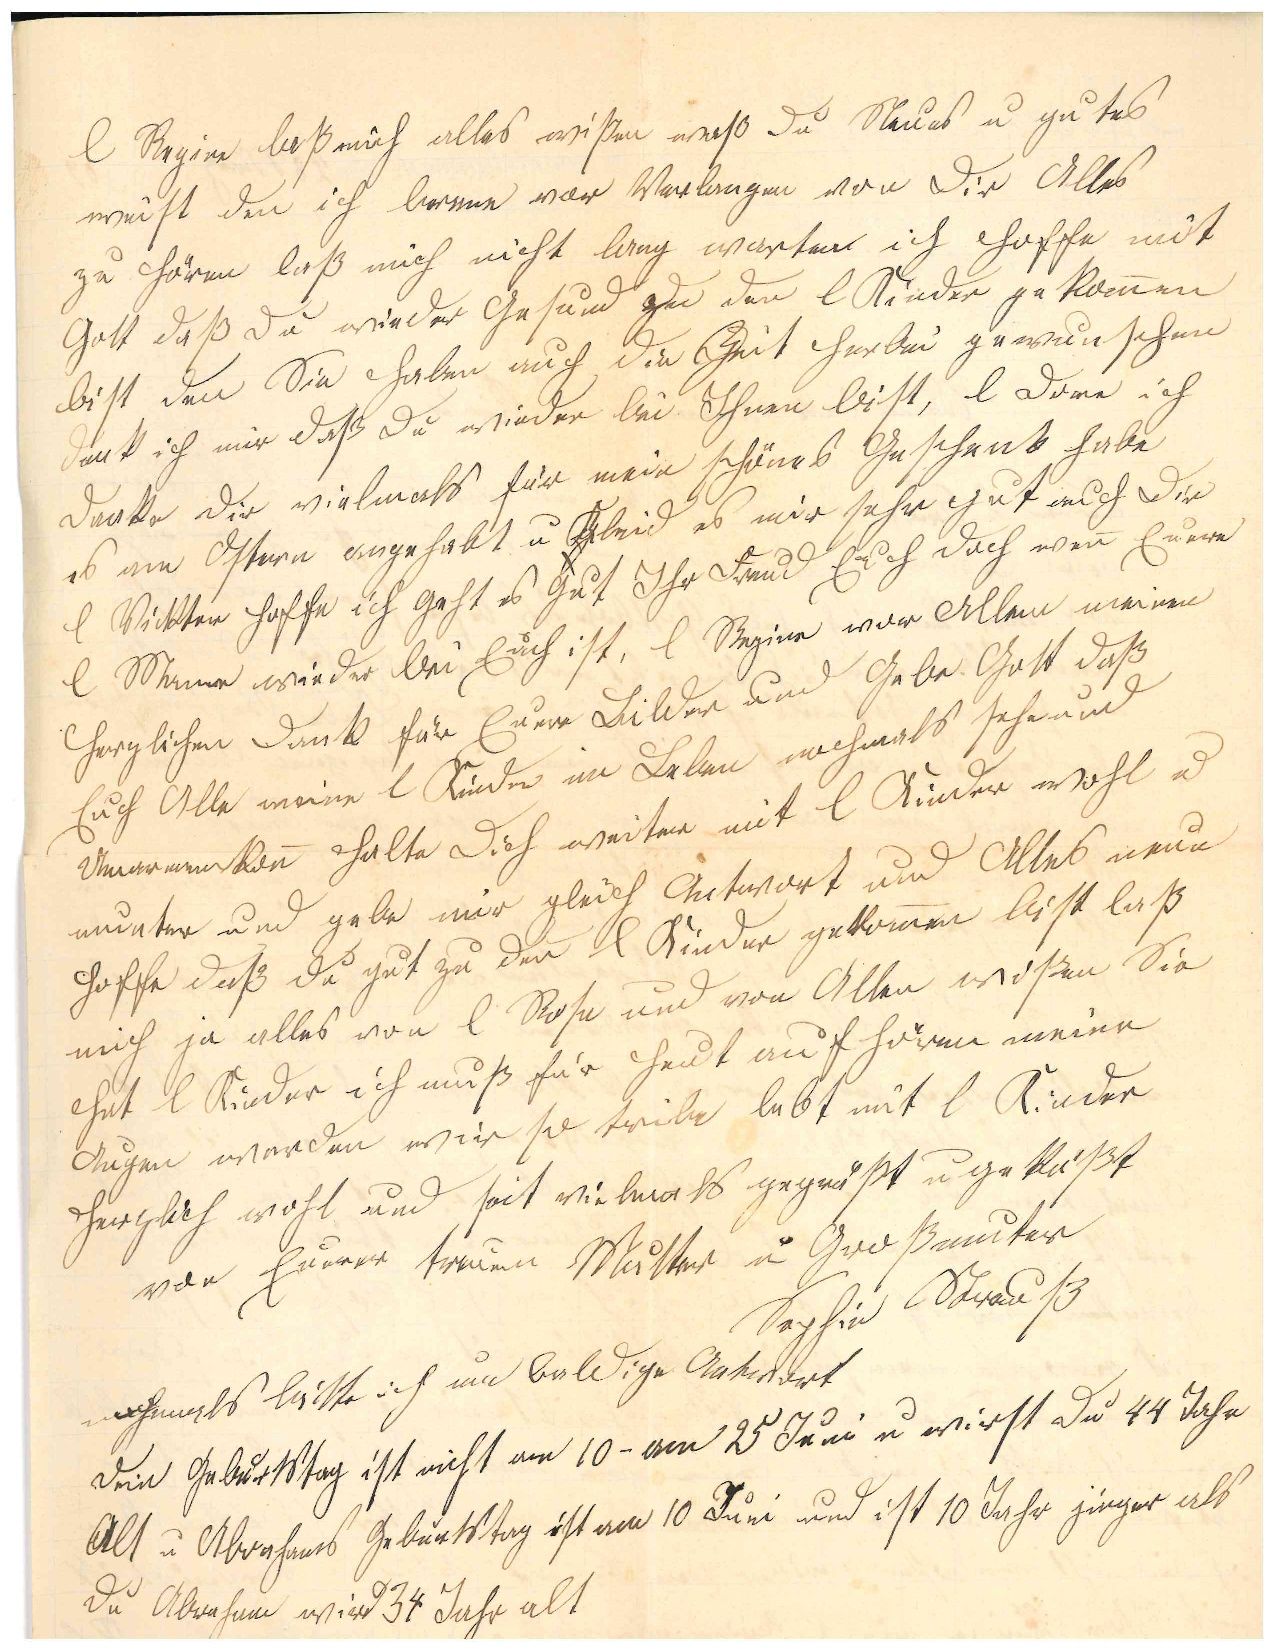 l Regine laß mich alles wißen waß Du Neues u gutes
weist den ich brene vor Verlangen von Dir Alles
zu hören laß mich nicht lang warten ich hoffe mit
Gott daß Du wieder Gesund zu den l Kinder gekom̄en
bist den Sie haben auch die Zeit herbei gewunschen
denk ich mir daß Du wieder bei Ihnen bist, l Dore ich
danke Dir vielmals für mein schönes Geschenk habe
es an Ostern angehabt u Kleid es mir sehr gut auch Dir
l Vickter hoffe ich geht es Gut Ihr Freud Euch doch wen̄ Euere
l Mame wieder bei Euch ist, l Regine vor Allem meinen
herzlichen Dank für Euere Bilder und Gebe Gott daß
Euch Alle meine l Kinder im Leben nochmals sehe und
Umarmen kan̄ halte Dich weiter mit l Kinder wohl u
munter und gebe mir gleich Antwort und Alles neue
hoffe daß Du gut zu den l Kinder gekom̄en bist laß
mich ja alles von l Rosa und von Allen wißen Sie
hat l Kinder ich muß für heut auf hören meine
Augen werden mir so tribe lebt mit l Kinder
herzlich wohl und seit vielmals gegrüßt u geküßt
von Euerer treuen Mutter u Großmuter
Sophie Strauß
nochmals bitte ich um baldige Antwort
Dein Geburtstag ist nicht am 10 - am 25 Juni u wirst Du 44 Jahr
Alt u Abrahams Geburtstag ist am 10 Juni und ist 10 Jahr jünger als
Du Abraham wird 34 Jahr alt